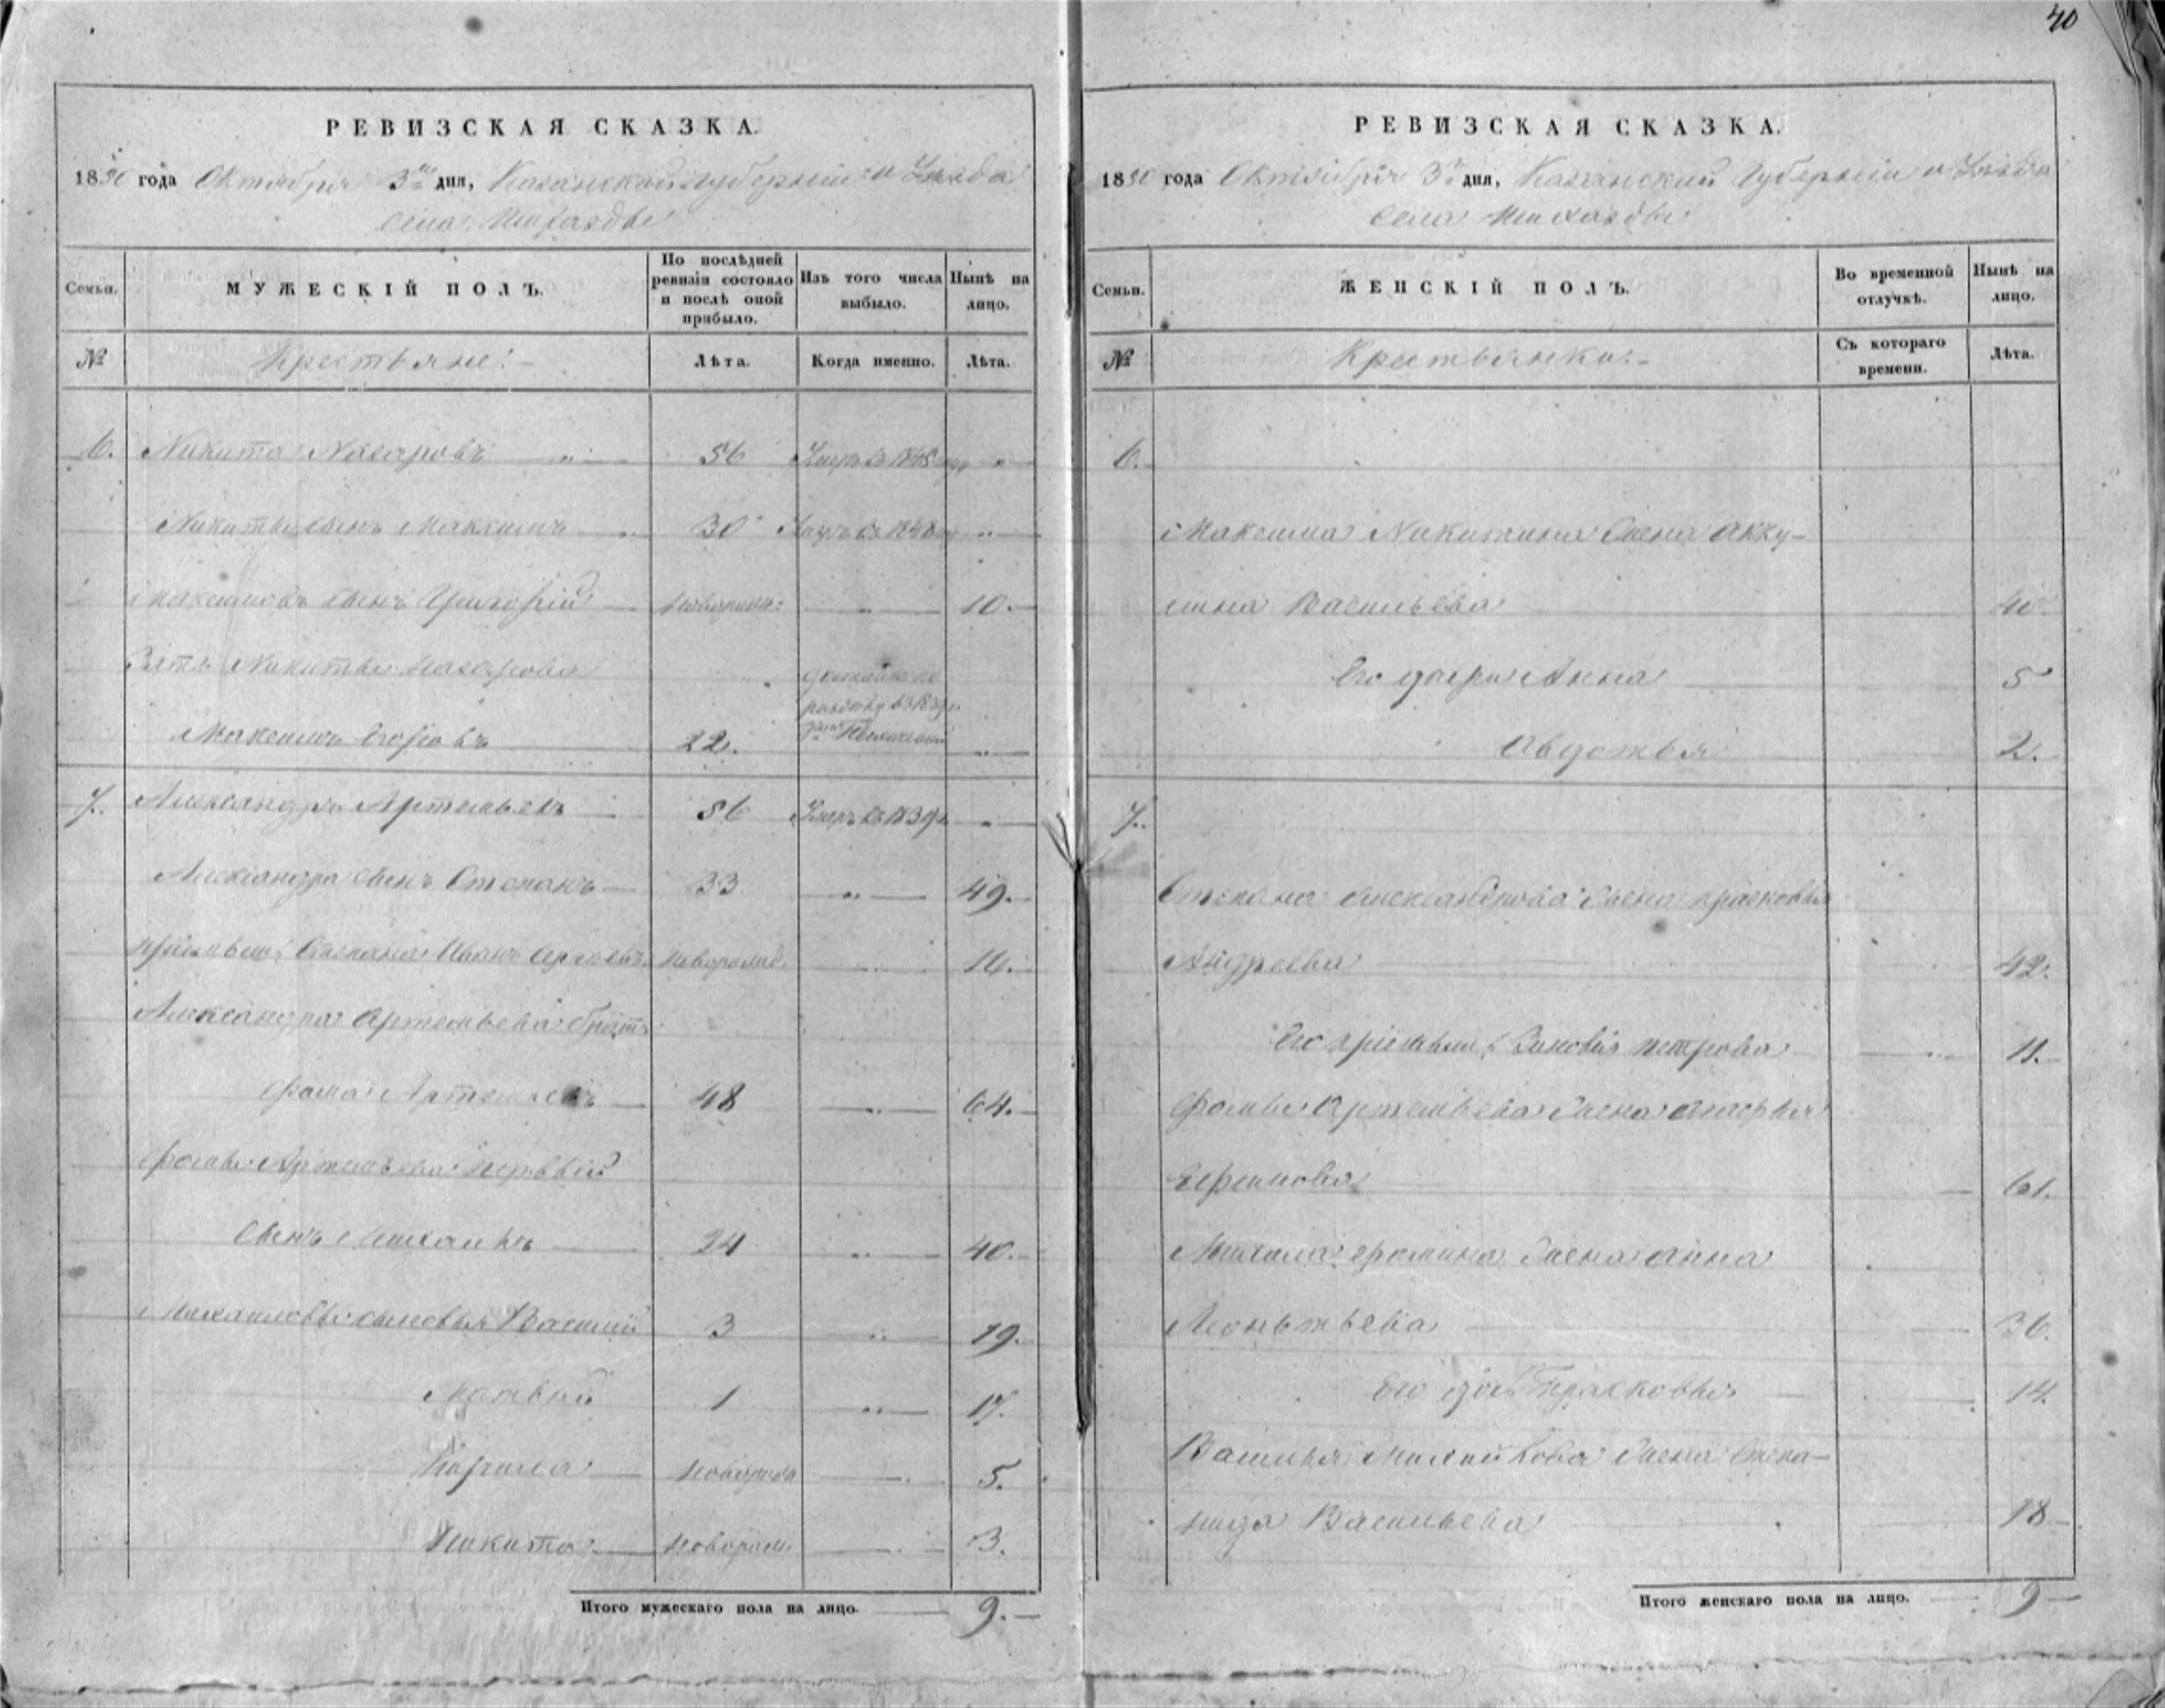 40
РЕВИЗСКАЯ СКАЗКА.
1850 года Октября 3го дня, Казанской губернии и Уезда
села
Семьи.
МУЖЕСКІЙ ПОЛЪ.
По послѣдней ревизіи состояло и послѣ оной прибыло.
Изъ того числа выбыло.
Нынѣ на лицо.
№
Крестьяне:
Лѣта.
Когда именно.
Лѣта.
6. Никита Назаровъ 56 Умеръ въ
Никиты сынъ Максимъ 30
Максимовъ сынъ Григорій новорожд: 10.
Зять Никиты Назарова
Максимъ Егоровъ 22.
7. Александръ Артемьевъ 56 Умеръ въ 1839
Александра сынъ Степанъ 33 49.
Пріемышъ Степана Иванъ новорожд. 16.
Александра Артемьева братъ
Фома Артемьевъ 48 64.
Фомы Артемьева первый
Сынъ Михаилъ 24 40.
Михаиловы сыновья Василий 3 19.
Матвей 1 17.
Кирила новорожд 5.
Никита новорожд. 3.
Итого мужескаго пола на лицо. 9.
РЕВИЗСКАЯ СКАЗКА.
1850 года Октября 3го дня, Казанской Губерніи и Уезда
села
Семьи.
ЖЕНСКІЙ ПОЛЪ.
Во временной отлучкѣ.
Нынѣ на лицо.
№
Крестьянки:
Съ котораго времени.
Лѣта.
6.
Максима Никитина жена Аку-
лина Васильева 40.
Его дочери Анна 5
Авдотья 2.
7.
Степана Александрова жена Прасковья
Андреева 42.
Его пріемышъ Зиновія Петрова 11.
Фомы Артемьева жена
Ефимова 61.
Михаила Фомина жена Анна
Леонтьева 36.
Его дочь Прасковья 14.
Василья Михайлова жена Степа-
нида Васильева 18
Итого женскаго пола на лицо. 9